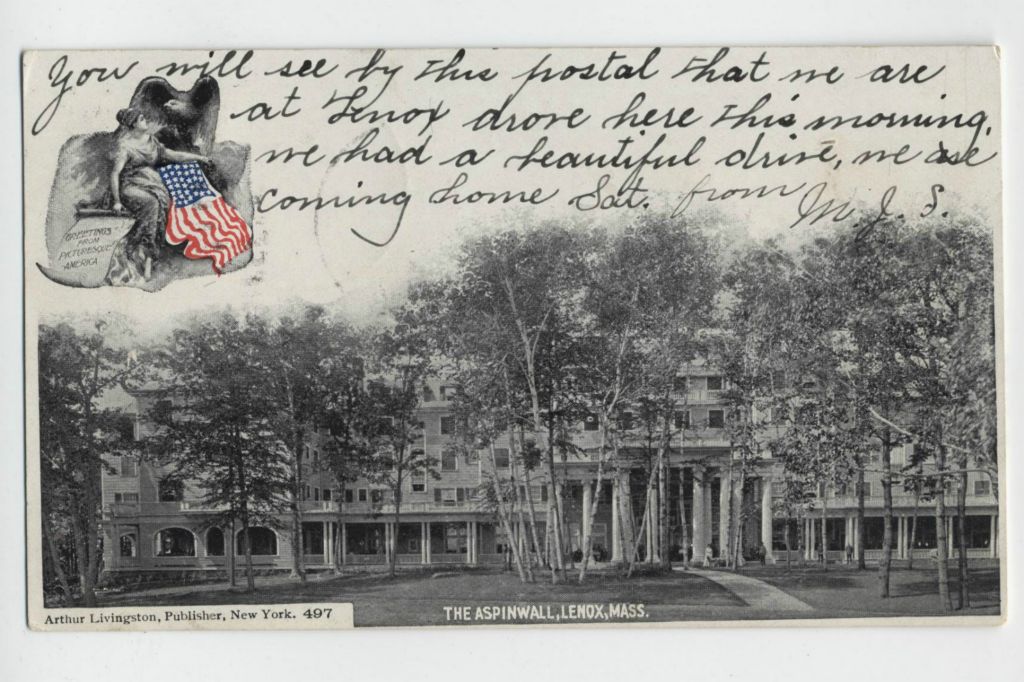 You will see by this postal that we are
at Lenox drove here this morning,
we had a beautiful drive, we are
coming home Sat. from M. J. S.
GREETINGS
FROM
PICTURESQUE
AMERICA
Arthur Livingston, Publisher, New York. 497
THE ASPINWALL, LENOX, MASS.